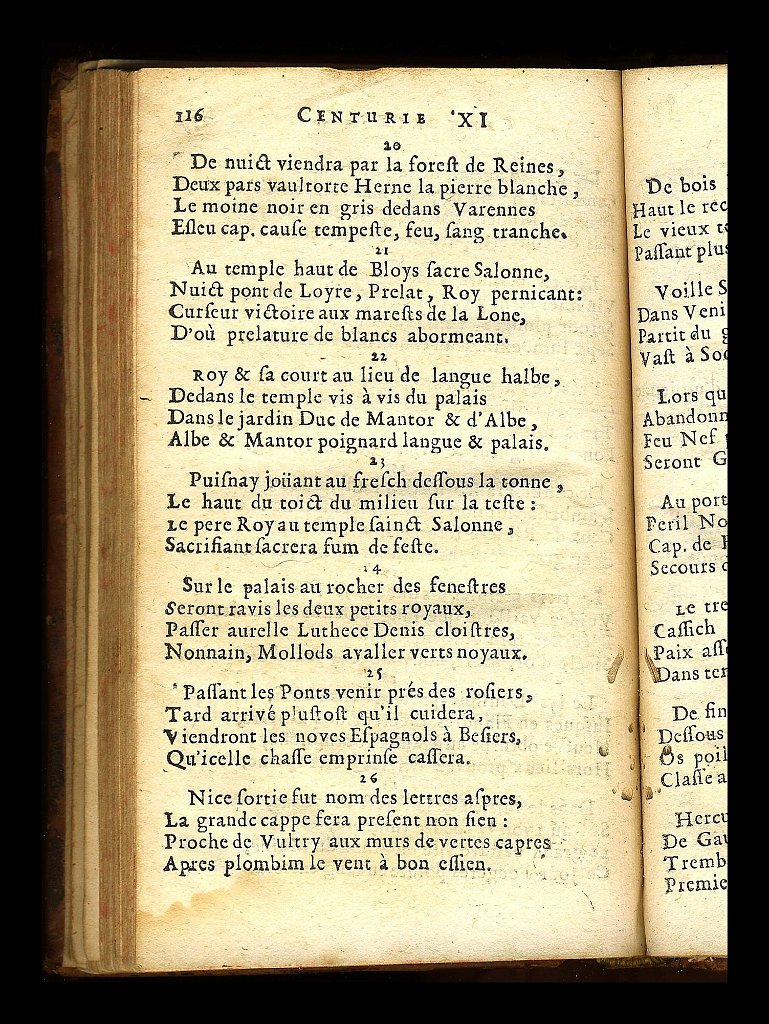 116 CENTURIE XI
20
De nuict viendra par la forest de Reines,
Deux pars vaultorte Herne la pierre blanche,
Le moine noir en gris dedans Varennes
Esleu cap. cause tempeste, feu, sang tranche.
21
Au temple haut de Bloys sacre Salonne,
Nuict pont de Loyre, Prelat, Roy pernicant:
Curseur victoire aux marests de la Lone,
D'où prelature de blancs abormeant.
22
Roy & sa court au lieu de langue halbe,
Dedans le temple vis à vis du palais
Dans le jardin Duc de Mantor & d'Albe,
Albe & Mantor poignard langue & palais.
23
Puisnay joüant au fresch dessous la tonne,
Le haut du toict du milieu sur la teste:
Le pere Roy au temple sainct Salonne,
Sacrifiant sacrera fum de feste.
24
Sur le palais au rocher des fenestres
Seront ravis les deux petits royaux,
Passer aurelle Luthece Denis cloistres,
Nonnain, Mollods avaller verts noyaux.
25
Passant les Ponts venir prés des rosiers,
Tard arrivé plustost qu'il cuidera,
Viendront les noves Espagnols à Besiers,
Qu'icelle chasse emprinse cassera.
26
Nice sortie fut nom des lettres aspres,
La grande cappe fera present non sien:
Proche de Vultry aux murs de vertes capres
Apres plombim le vent à bon essien.
De bois
Haut le rec
Le vieux t
Passant plus
Voille S
Dans Veni
Partit du g
Vast à Soc
Lors qu
Abandonn
Feu Nef
Seront G
Au port
Peril No
Cap. de
Secours
Le tre
Cassich
Paix ass
Dans ter
De fin
Dessous
Os poil
Classe a
Hercu
De Gau
Tremb
Premie